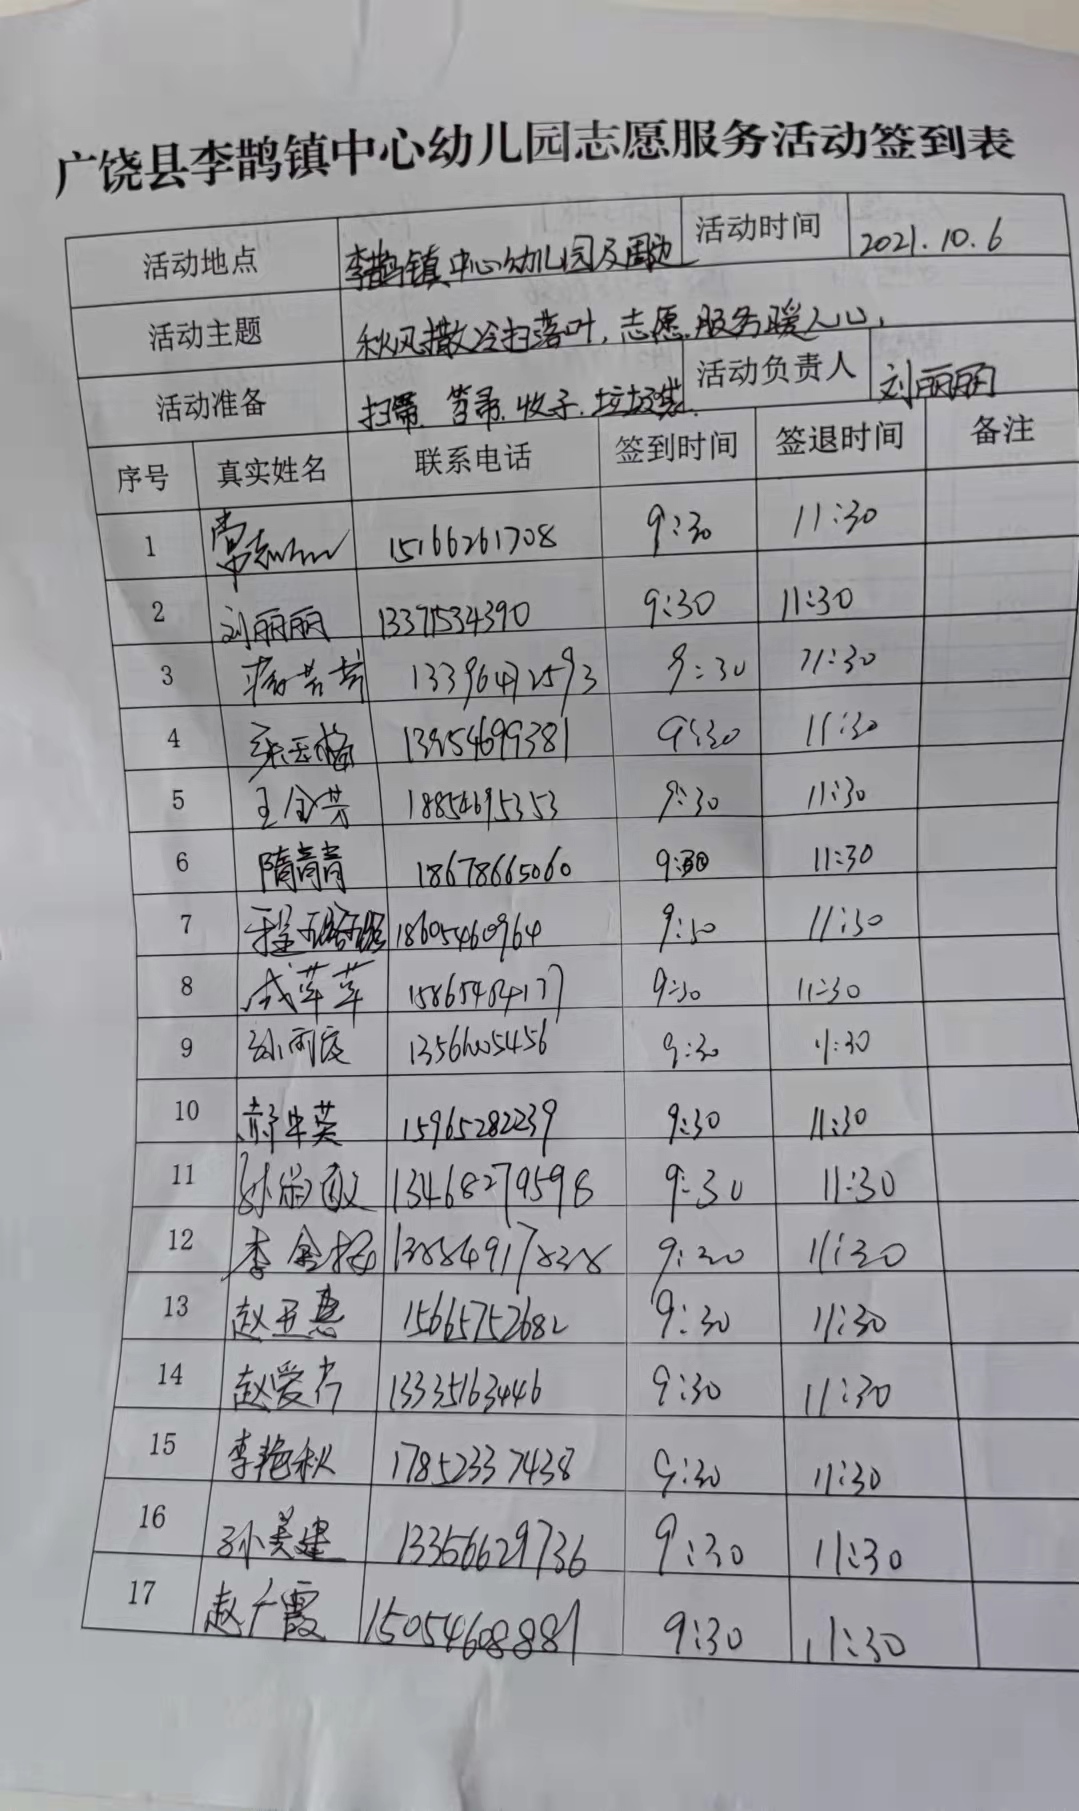 广饶县李鹊镇中心幼儿园志愿服务活动签到表
活动地点 李鹊镇中心幼儿园及周边 活动时间 2021.10.6
活动主题 秋风撒冷扫落叶,志愿服务暖人心,
活动准备 扫帚 笤帚 收子 垃圾袋. 活动负责人 刘丽丽
序号 真实姓名 联系电话 签到时间 签退时间 备注
1 15166261708 9:30 11:30
2 刘丽丽 13371534390 9:30 11:30
3 13396472593 9:30 11:30
4 9:30 11:30
5 王全芳 18854695353 9:30 11:30
6 隋青青 18678665060 9:30 11:30
7 程璐璐 18605460964 9:30 11:30
8 成苹苹 9:30 11:30
9 9:30 11:30
10 15965282239 9:30 11:30
11 13468279598 9:30 11:30
12 9:30 11:30
13 赵亚慧 15665752682 9:30 11:30
14 13335163446 9:30 11:30
15 李艳秋 17852337438 9:30 11:30
16 孙美建 13356629736 9:30 11:30
17 赵广霞 15054608881 9:30 11:30